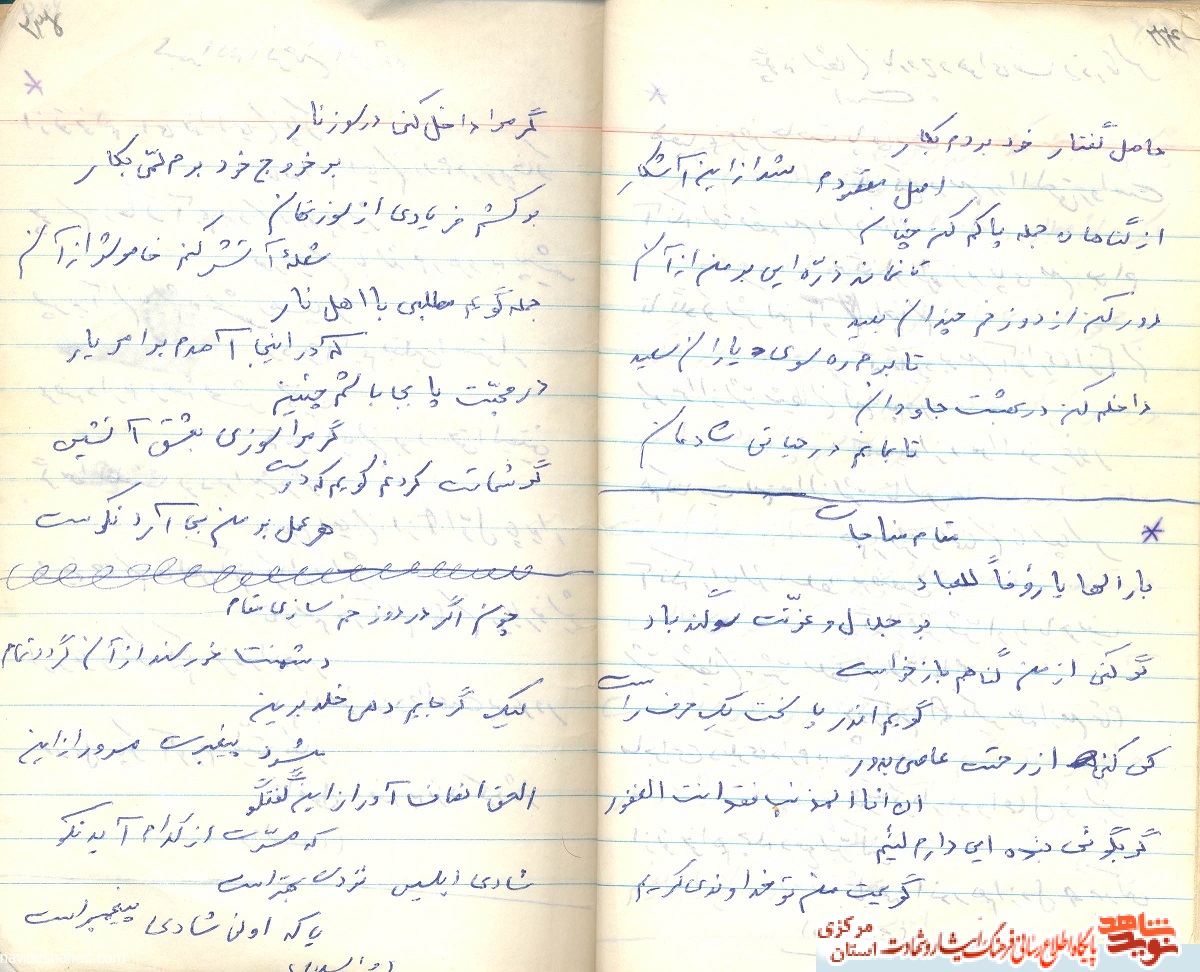 حاصل گفتار خود بردم بکار
اصل مقصودم شد از این آشکار
از گناهان جمله پاکم کن چنان
تا نماند ذره ای بر من از آن
دور کن از دوزخم چندان بعید
تا برم ره سوی یاران سعید
داخلم کن در بهشت جاودان
تا بیابم در حیاتی شادمان
مقام مناجات
بارالها یا رؤفاً للعباد
بر جلال و عزّتت سوگند باد
گر کنی از من گناهم بازخواست
گویم اندر پاسخت یک حرف راست
کی کنی از رحمتت عاصی بدور
ان انا المذنب فقد انت الغفور
گر بگوئی بنده ای دارم لئیم
گویمت من تو خداوندی کریم
گر مرا داخل کنی در سوز نار
بر خروج خود برم لمّی بکار
بر کشم فریادی از سوز نهان
شعلهٔ آتش کنم خاموش از آن
جمله گویم مطلبی با اهل نار
که در اینجا آمدم بر امر یار
در محبّت پا بجا باشم چنین
گر مرا سوزی بعشق آتشین
گر شماتت کردنم گویم که دوست
هر عمل بر من بجا آرد نکوست
چون اگر در دوزخم سازی مقام
دشمنت خورسند از آن گردد تمام
لیک گر جایم دهی خلد برین
میشود پیغمبرت مسرور از این
الحق انصاف آور از این گفتگو
که مسرّت از کدام آید نکو
شادی ابلیس نزدت بهتر است
یا که اولی شادی پیغمبر است
نوید شاهد
پایگاه اطلاع رسانی فرهنگ ایثار و شهادت استان مرکزی